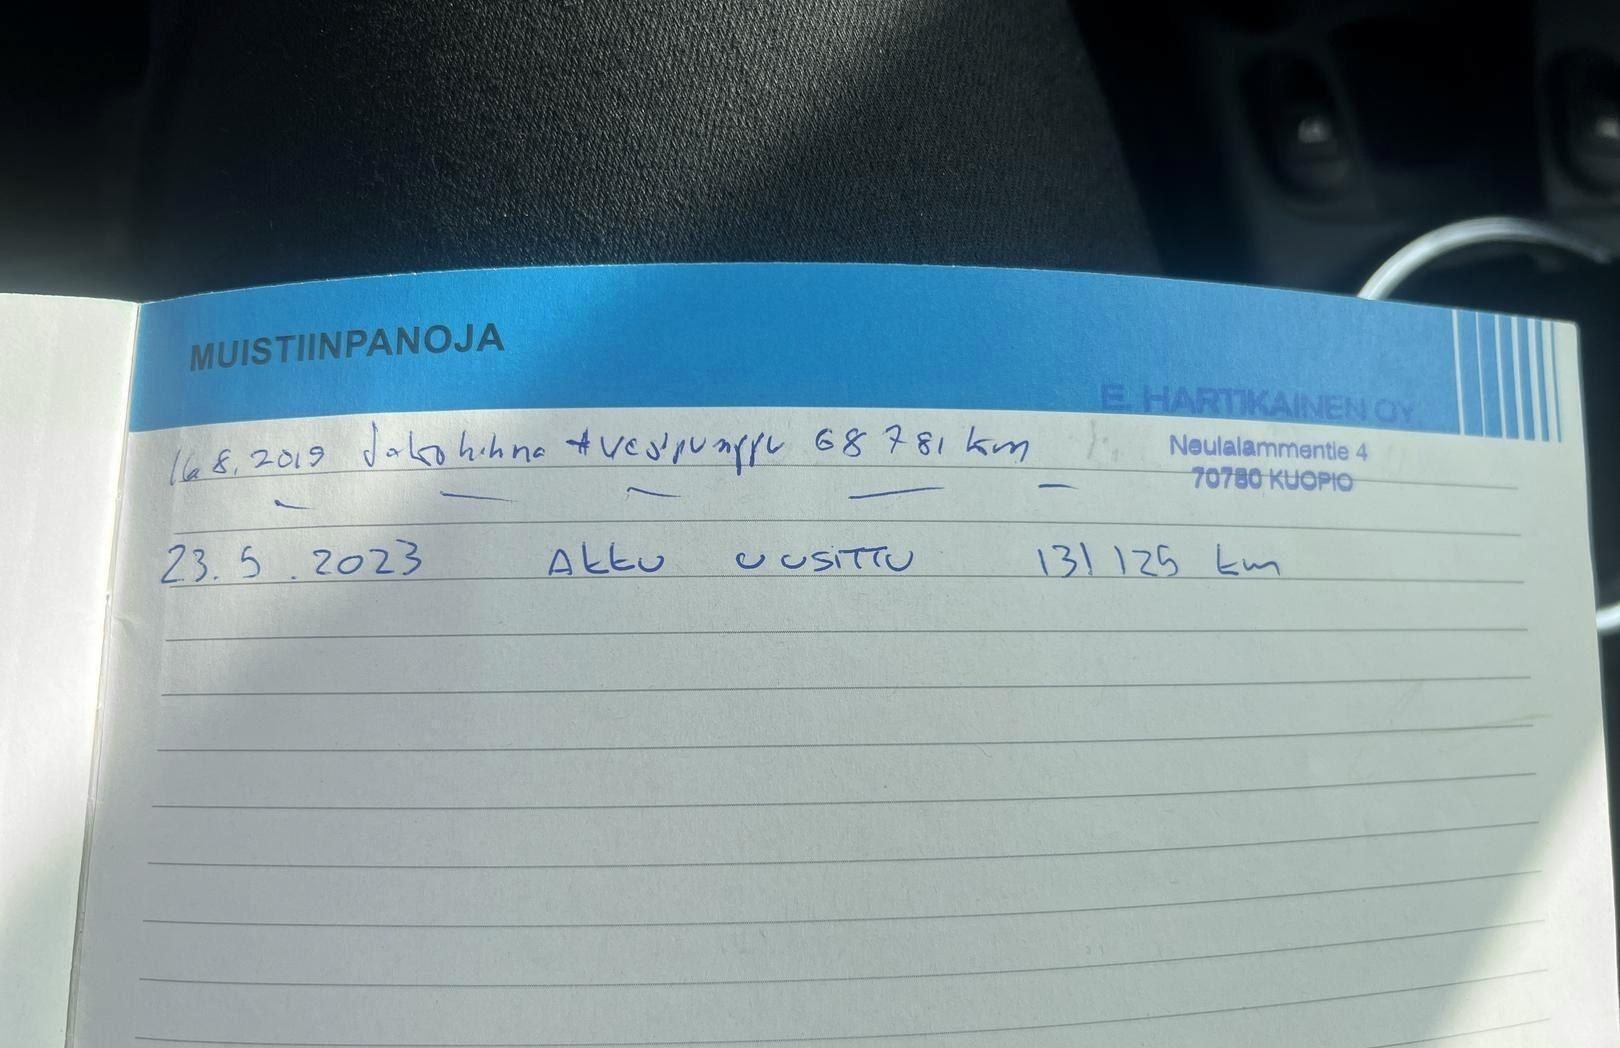 MUISTIINPANOJA
E. HARTIKAINEN OY
Neulalammentie 4
70780 KUOPIO
16.8.2019 Jakohihna + vesipumppu 68 781 km
23.5.2023 AKKU UUSITTU 131 125 km